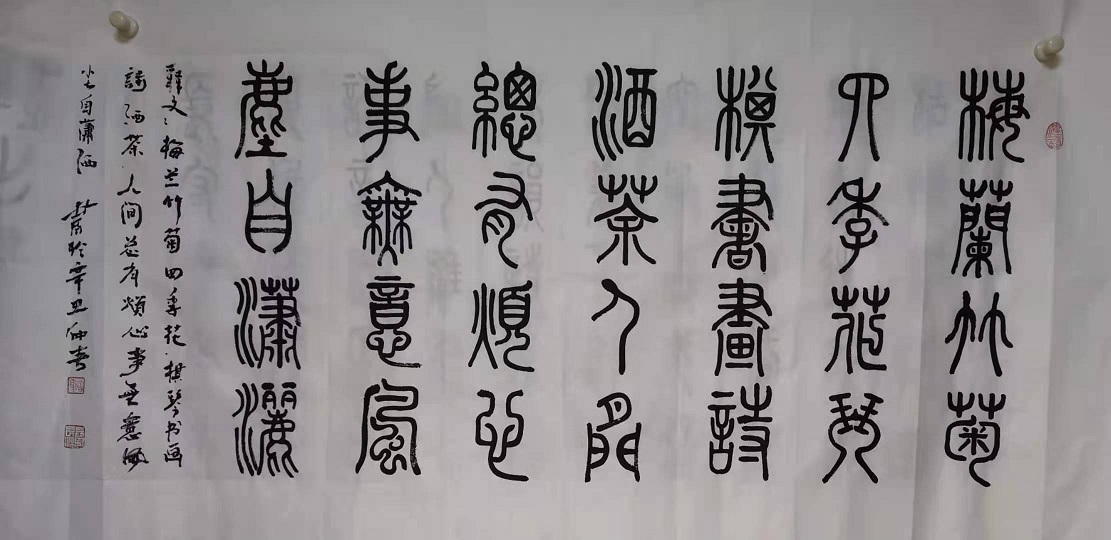 梅蘭竹菊
四季花琴
棋書畫詩
酒茶人間
總有煩心
事無意風
塵自瀟灑
釋文：梅兰竹菊四季花，棋琴书画
詩酒茶，人间总有烦心事，无意风
尘自潇洒
辛丑仲春